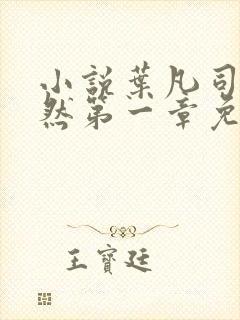 小說葉凡司
然第一章免
王寶廷